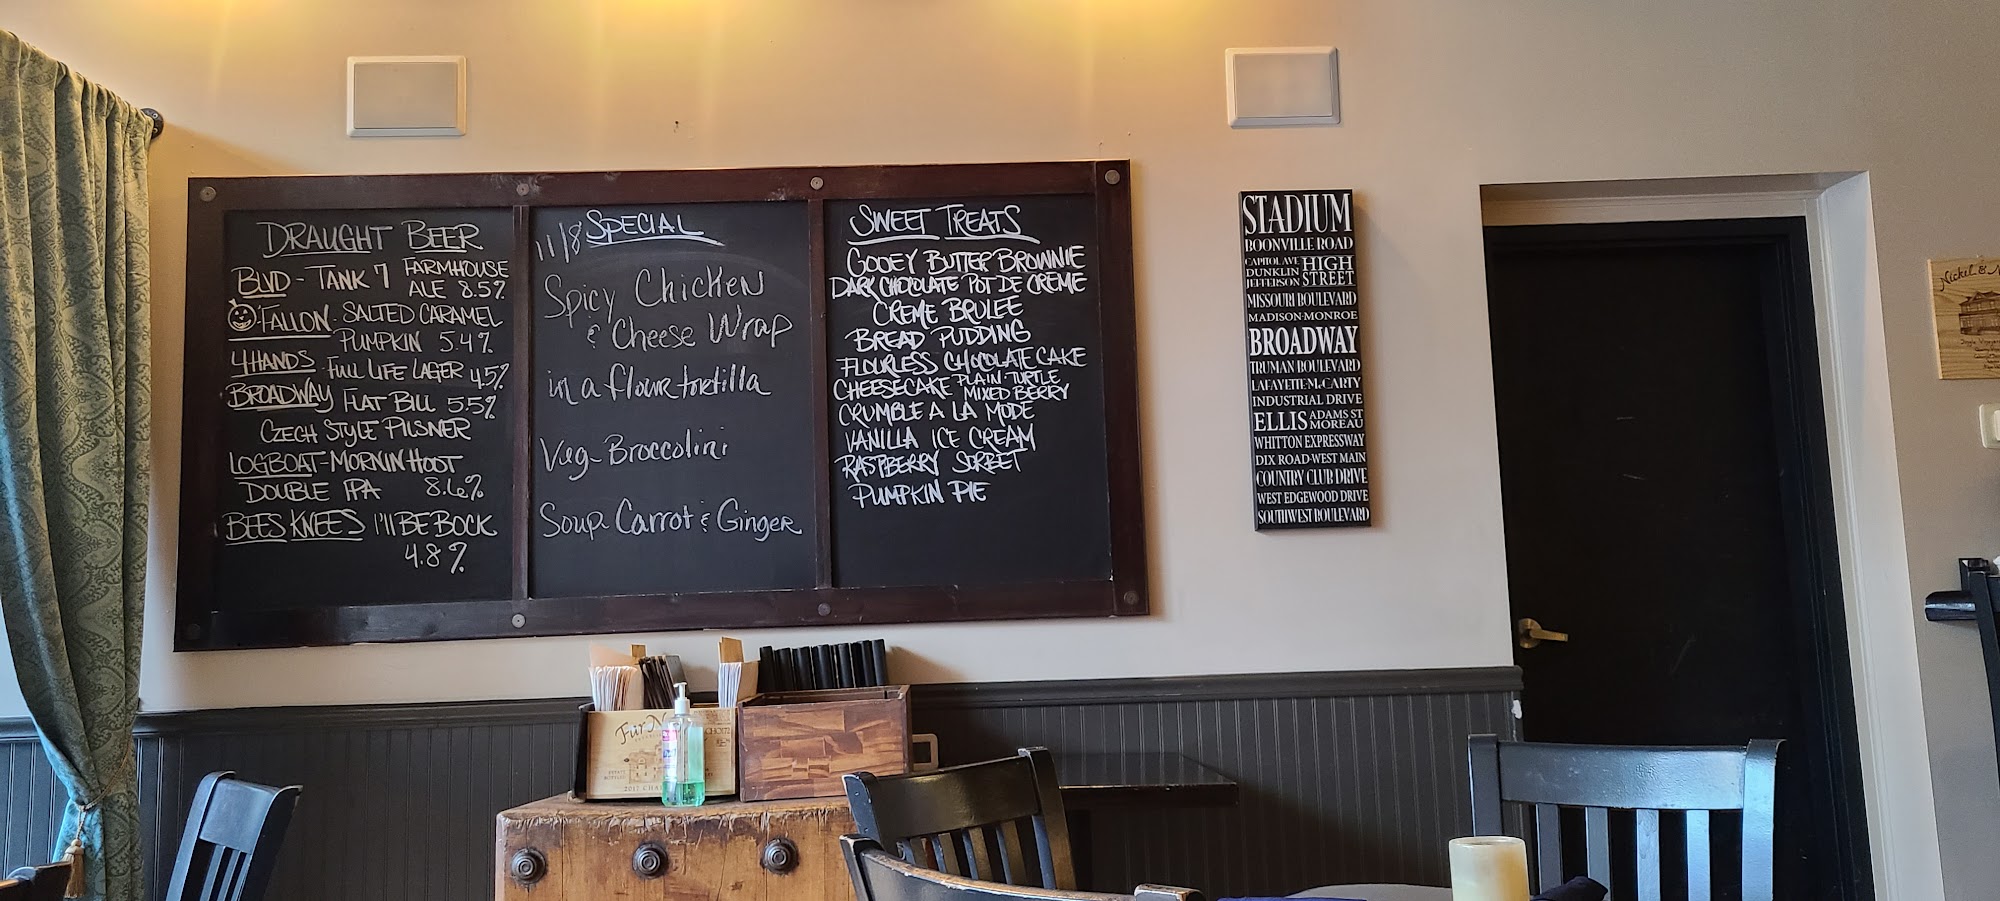 DRAUGHT BEER
BLVD - TANK 7 FARMHOUSE
ALE 8.5%
FALLON - SALTED CARAMEL
PUMPKIN 5.4%
4HANDS - FULL LIFE LAGER 4.5%
BROADWAY FLAT BILL 5.5%
CZECH STYLE PILSNER
LOGBOAT - MORNIN HOOT
DOUBLE IPA 8.6%
BEES KNEES I'll BE BOCK
4.8%
11/8 SPECIAL
Spicy Chicken
& Cheese Wrap
in a flour tortilla
Veg - Broccolini
Soup Carrot & Ginger
SWEET TREATS
GOOEY BUTTER BROWNIE
DARK CHOCOLATE POT DE CREME
CREME BRULEE
BREAD PUDDING
FLOURLESS CHOCOLATE CAKE
CHEESECAKE PLAIN · TURTLE
MIXED BERRY
CRUMBLE A LA MODE
VANILLA ICE CREAM
RASPBERRY SORBET
PUMPKIN PIE
STADIUM
BOONVILLE ROAD
CAPITOL AVE
DUNKLIN
JEFFERSON
HIGH
STREET
MISSOURI BOULEVARD
MADISON·MONROE
BROADWAY
TRUMAN BOULEVARD
LAFAYETTE·McCARTY
INDUSTRIAL DRIVE
ELLIS
ADAMS ST
MOREAU
WHITTON EXPRESSWAY
DIX ROAD·WEST MAIN
COUNTRY CLUB DRIVE
WEST EDGEWOOD DRIVE
SOUTHWEST BOULEVARD
Nickel &
2017